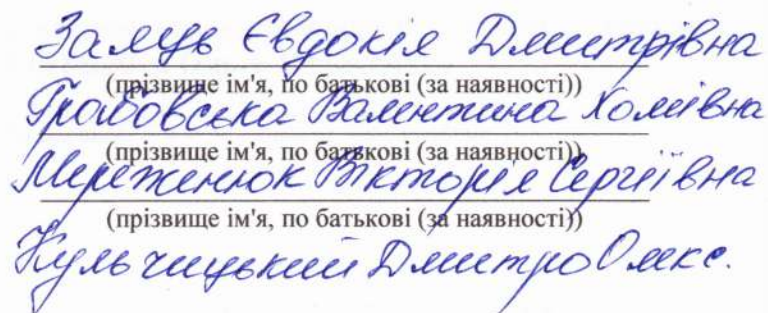 Заяць Євдокія Дмитрівна
(прізвище ім'я, по батькові (за наявності))
Грабовська Валентина Хомівна
(прізвище ім'я, по батькові (за наявності))
Мереженюк Вікторія Сергіївна
(прізвище ім'я, по батькові (за наявності))
Кульчицький Дмитро Олекс.